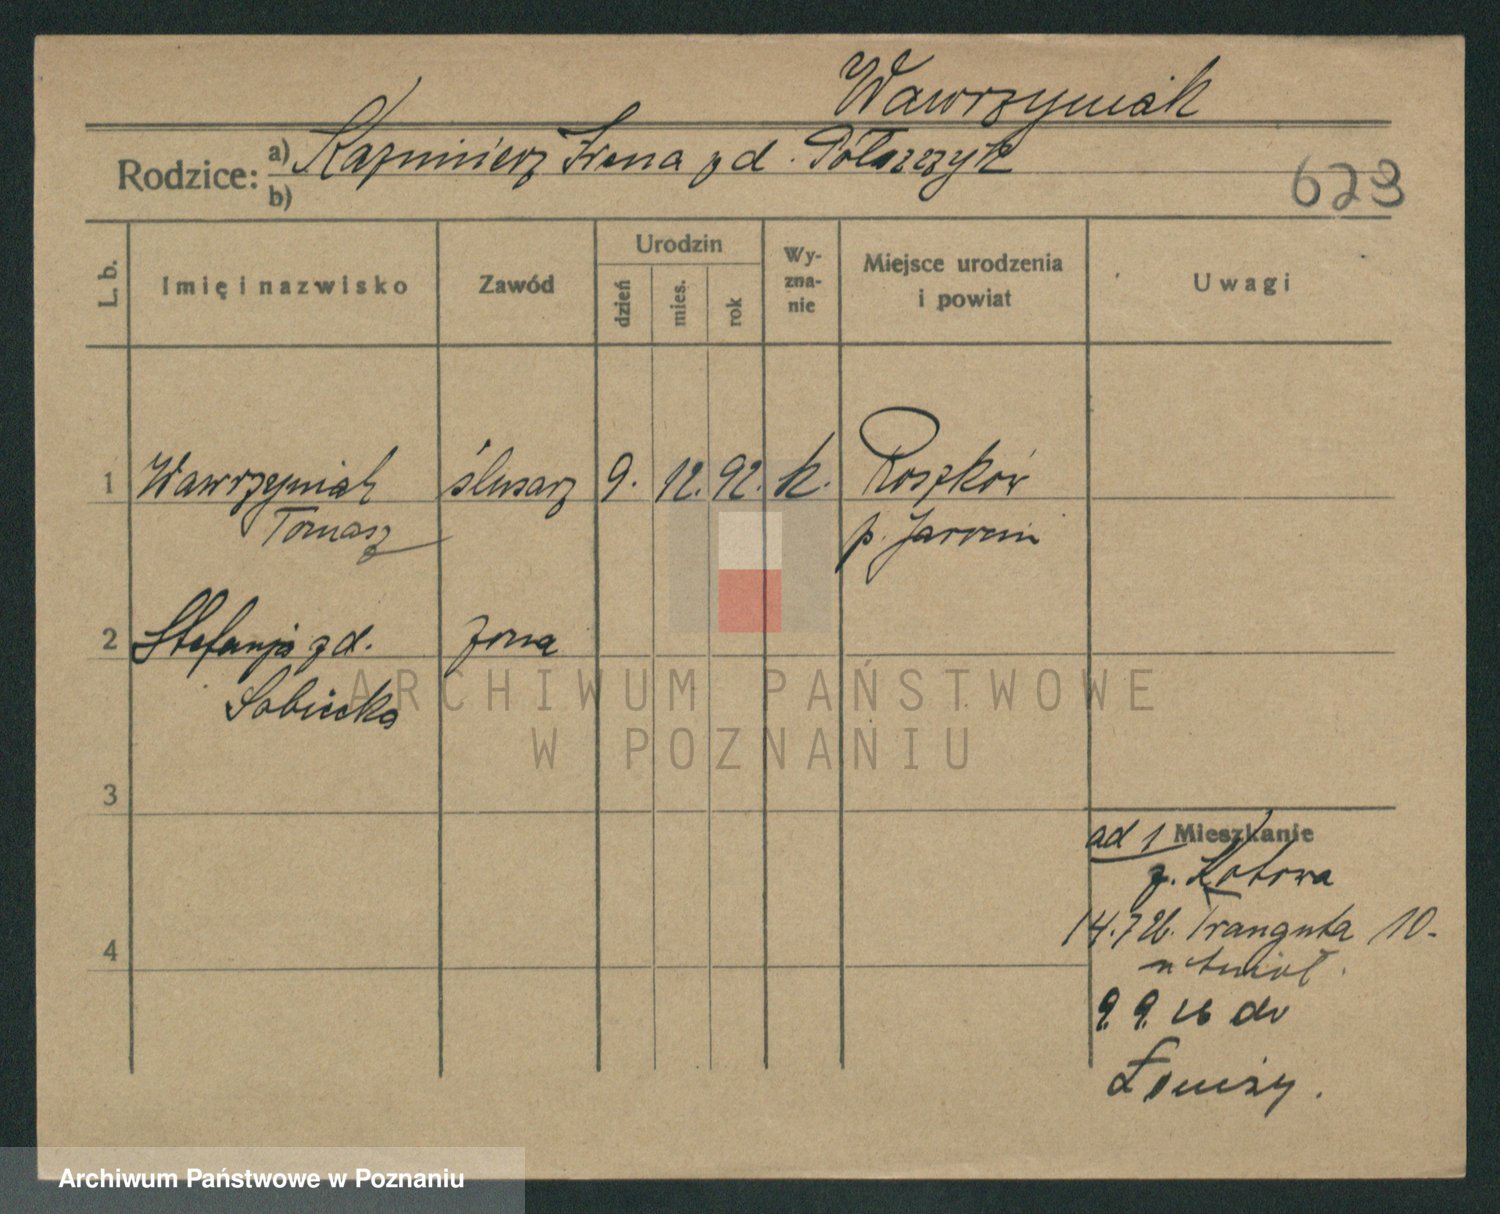 Wawrzyniak
Rodzice: a) Kazimierz Irena z d.
b)
623
L. b.
Imię i nazwisko
Zawód
Urodzin
dzień
mies.
rok
Wy-
zna-
nie
Miejsce urodzenia
i powiat
Uwagi
1 Wawrzyniak ślusarz 9. 12. 92. k. Roszków
Tomasz p. Jarocin
2 Stefanja z d. żona
Sobiecka
ARCHIWUM PAŃSTWOWE
W POZNANIU
3
ad 1 Mieszkanie
z. Kotowa
14.7 26. 10.
4
9. 9. 26 do
Łomży.
Archiwum Państwowe w Poznaniu